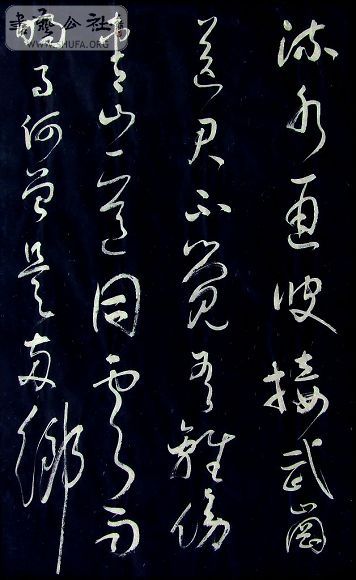 流水通波接武岡
送君不覺有離傷
青山一道同雲雨
明月何曾是兩鄉
書藝公社
WWW.SHUFA.ORG